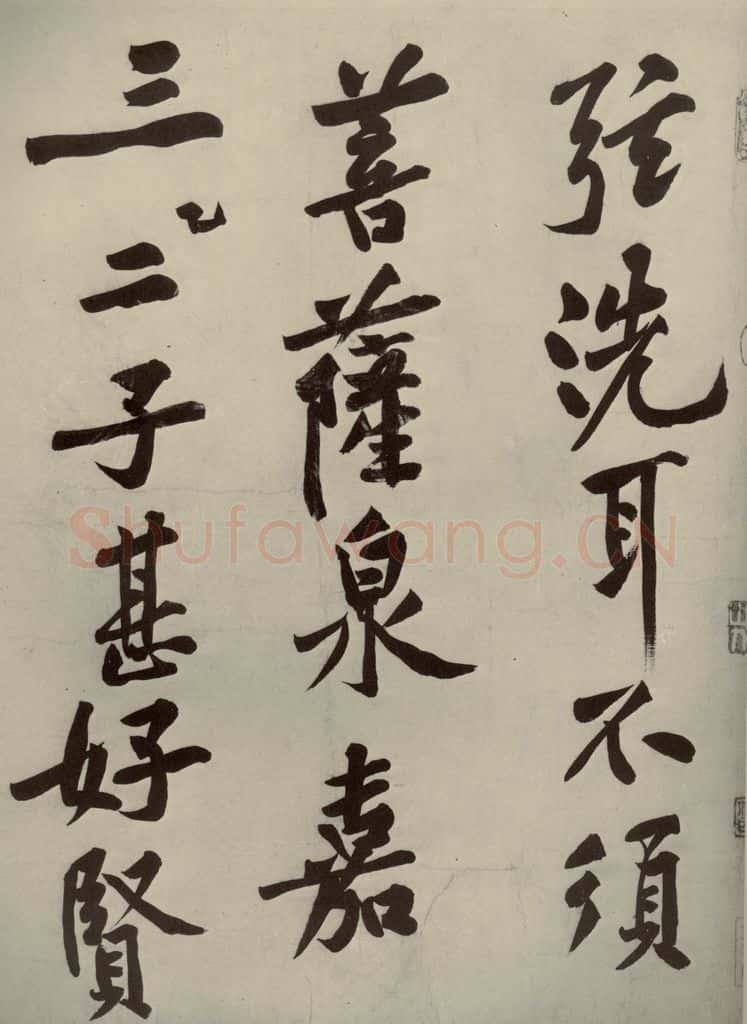 弦洗耳不須
菩薩泉嘉
三二子甚好賢
Shufawang.CN